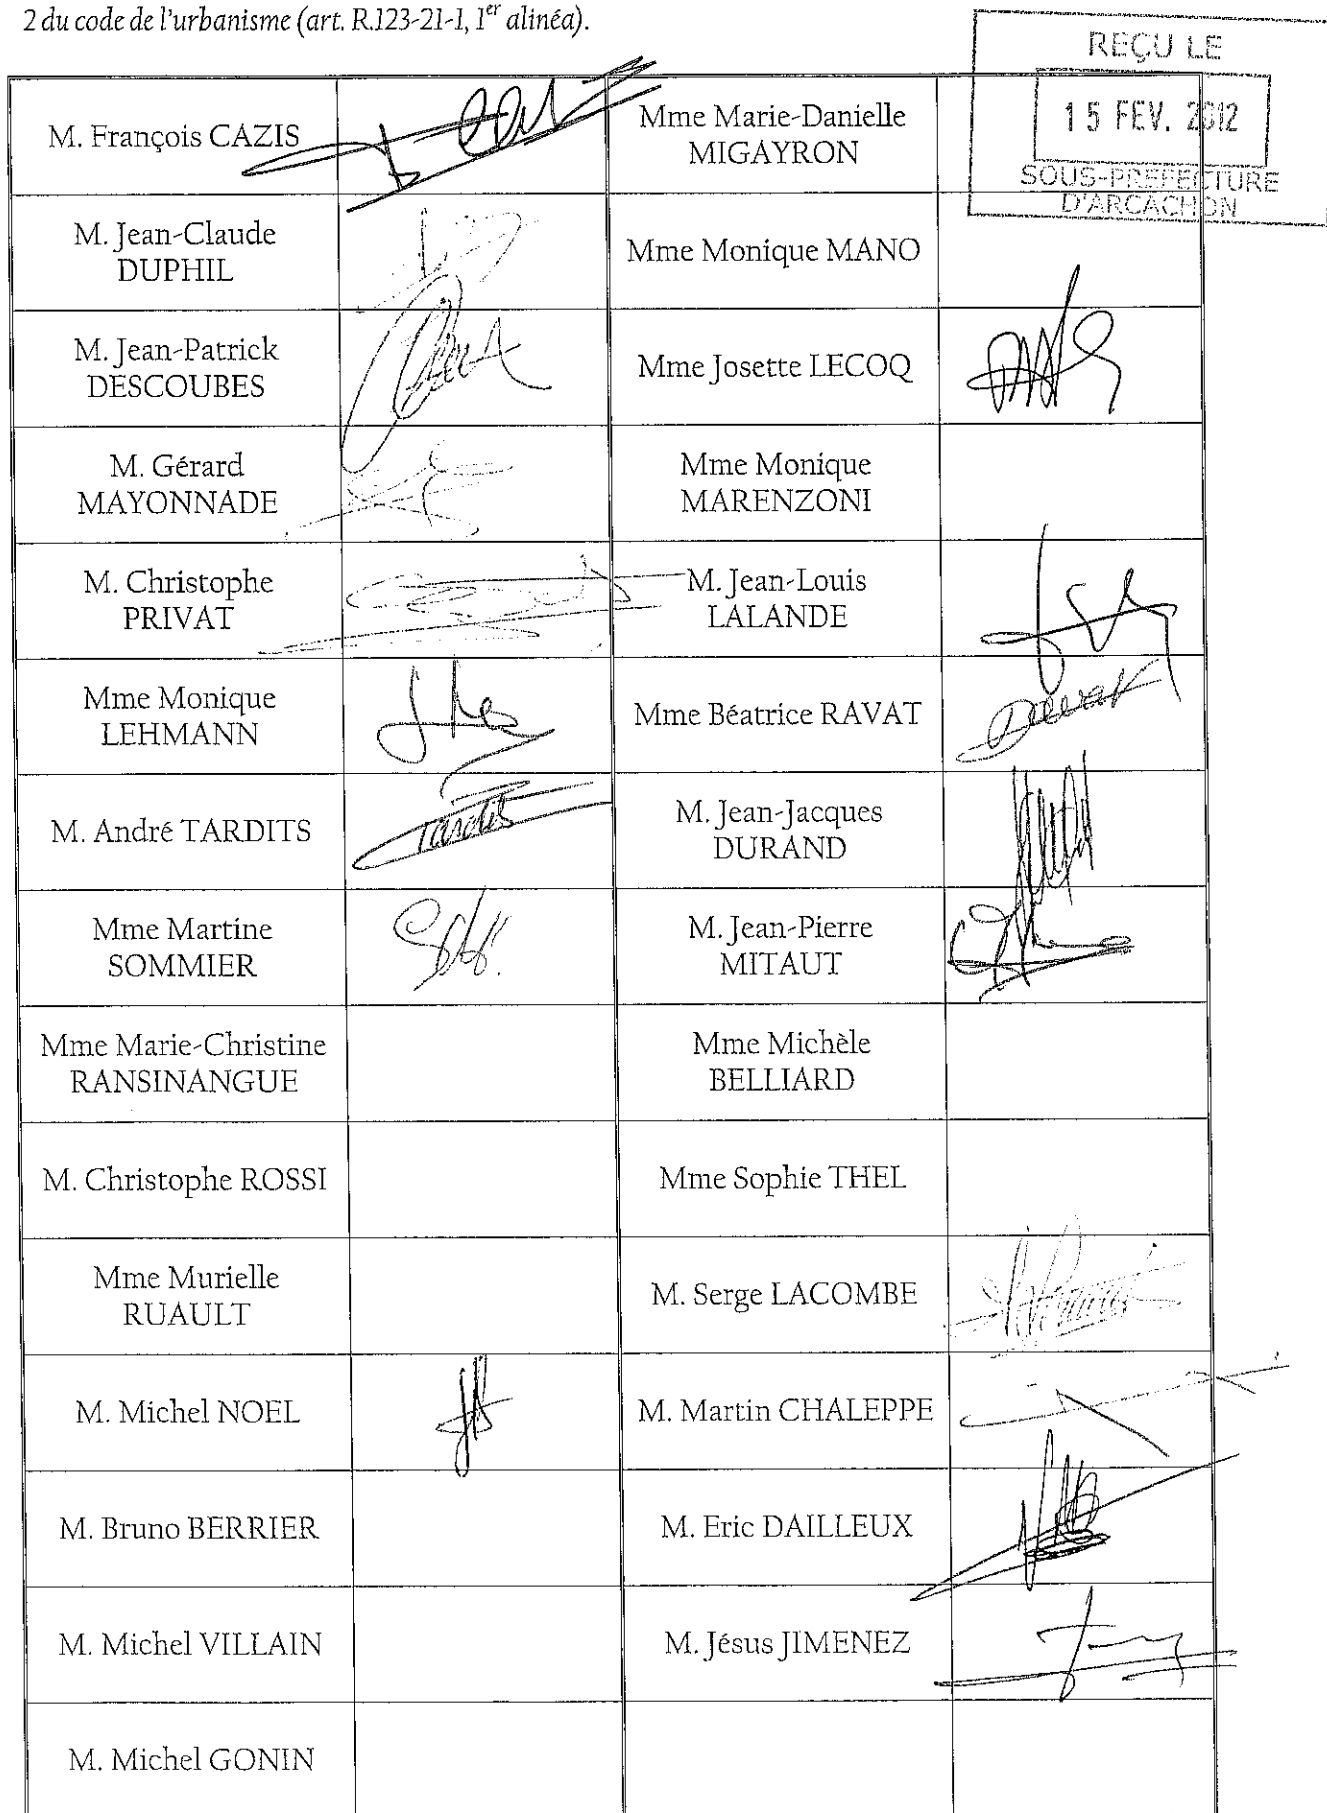 2 du code de l'urbanisme (art. R.123-21-1, 1er alinéa).
REÇU LE
15 FEV. 2012
SOUS-PREFECTURE
D'ARCACHON
M. François CAZIS
Mme Marie-Danielle
MIGAYRON
M. Jean-Claude
DUPHIL
Mme Monique MANO
M. Jean-Patrick
DESCOUBES
Mme Josette LECOQ
M. Gérard
MAYONNADE
Mme Monique
MARENZONI
M. Christophe
PRIVAT
M. Jean-Louis
LALANDE
Mme Monique
LEHMANN
Mme Béatrice RAVAT
M. André TARDITS
Tardits
M. Jean-Jacques
DURAND
Mme Martine
SOMMIER
M. Jean-Pierre
MITAUT
Mme Marie-Christine
RANSINANGUE
Mme Michèle
BELLIARD
M. Christophe ROSSI
Mme Sophie THEL
Mme Murielle
RUAULT
M. Serge LACOMBE
M. Michel NOEL
M. Martin CHALEPPE
M. Bruno BERRIER
M. Eric DAILLEUX
M. Michel VILLAIN
M. Jésus JIMENEZ
M. Michel GONIN